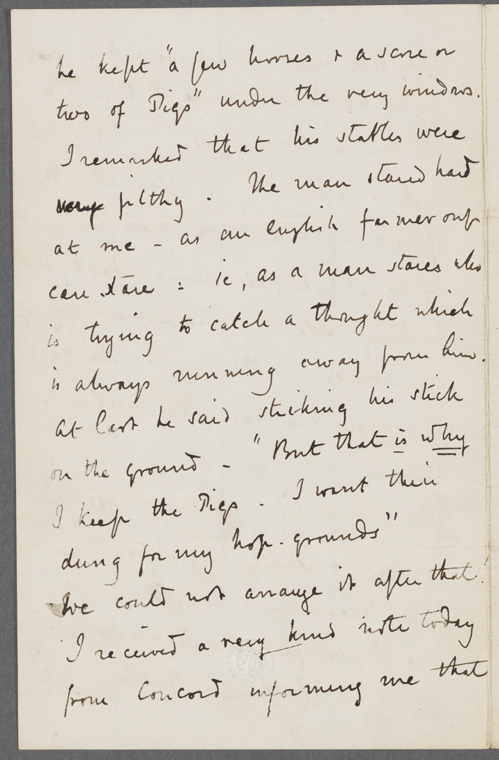 he kept "a few horses & a score or
two of Pigs" under the very windows.
I remarked that his stables were
very filthy. The man stared hard
at me - as an English farmer only
can stare : ie, as a man stares who
is trying to catch a thought which
is always running away from him.
At last he said striking his stick
on the ground - "But that is why
I keep the Pigs. I want their
dung for my hop-grounds"
We could not arrange it after that!
I received a very kind note today
from Concord informing me that